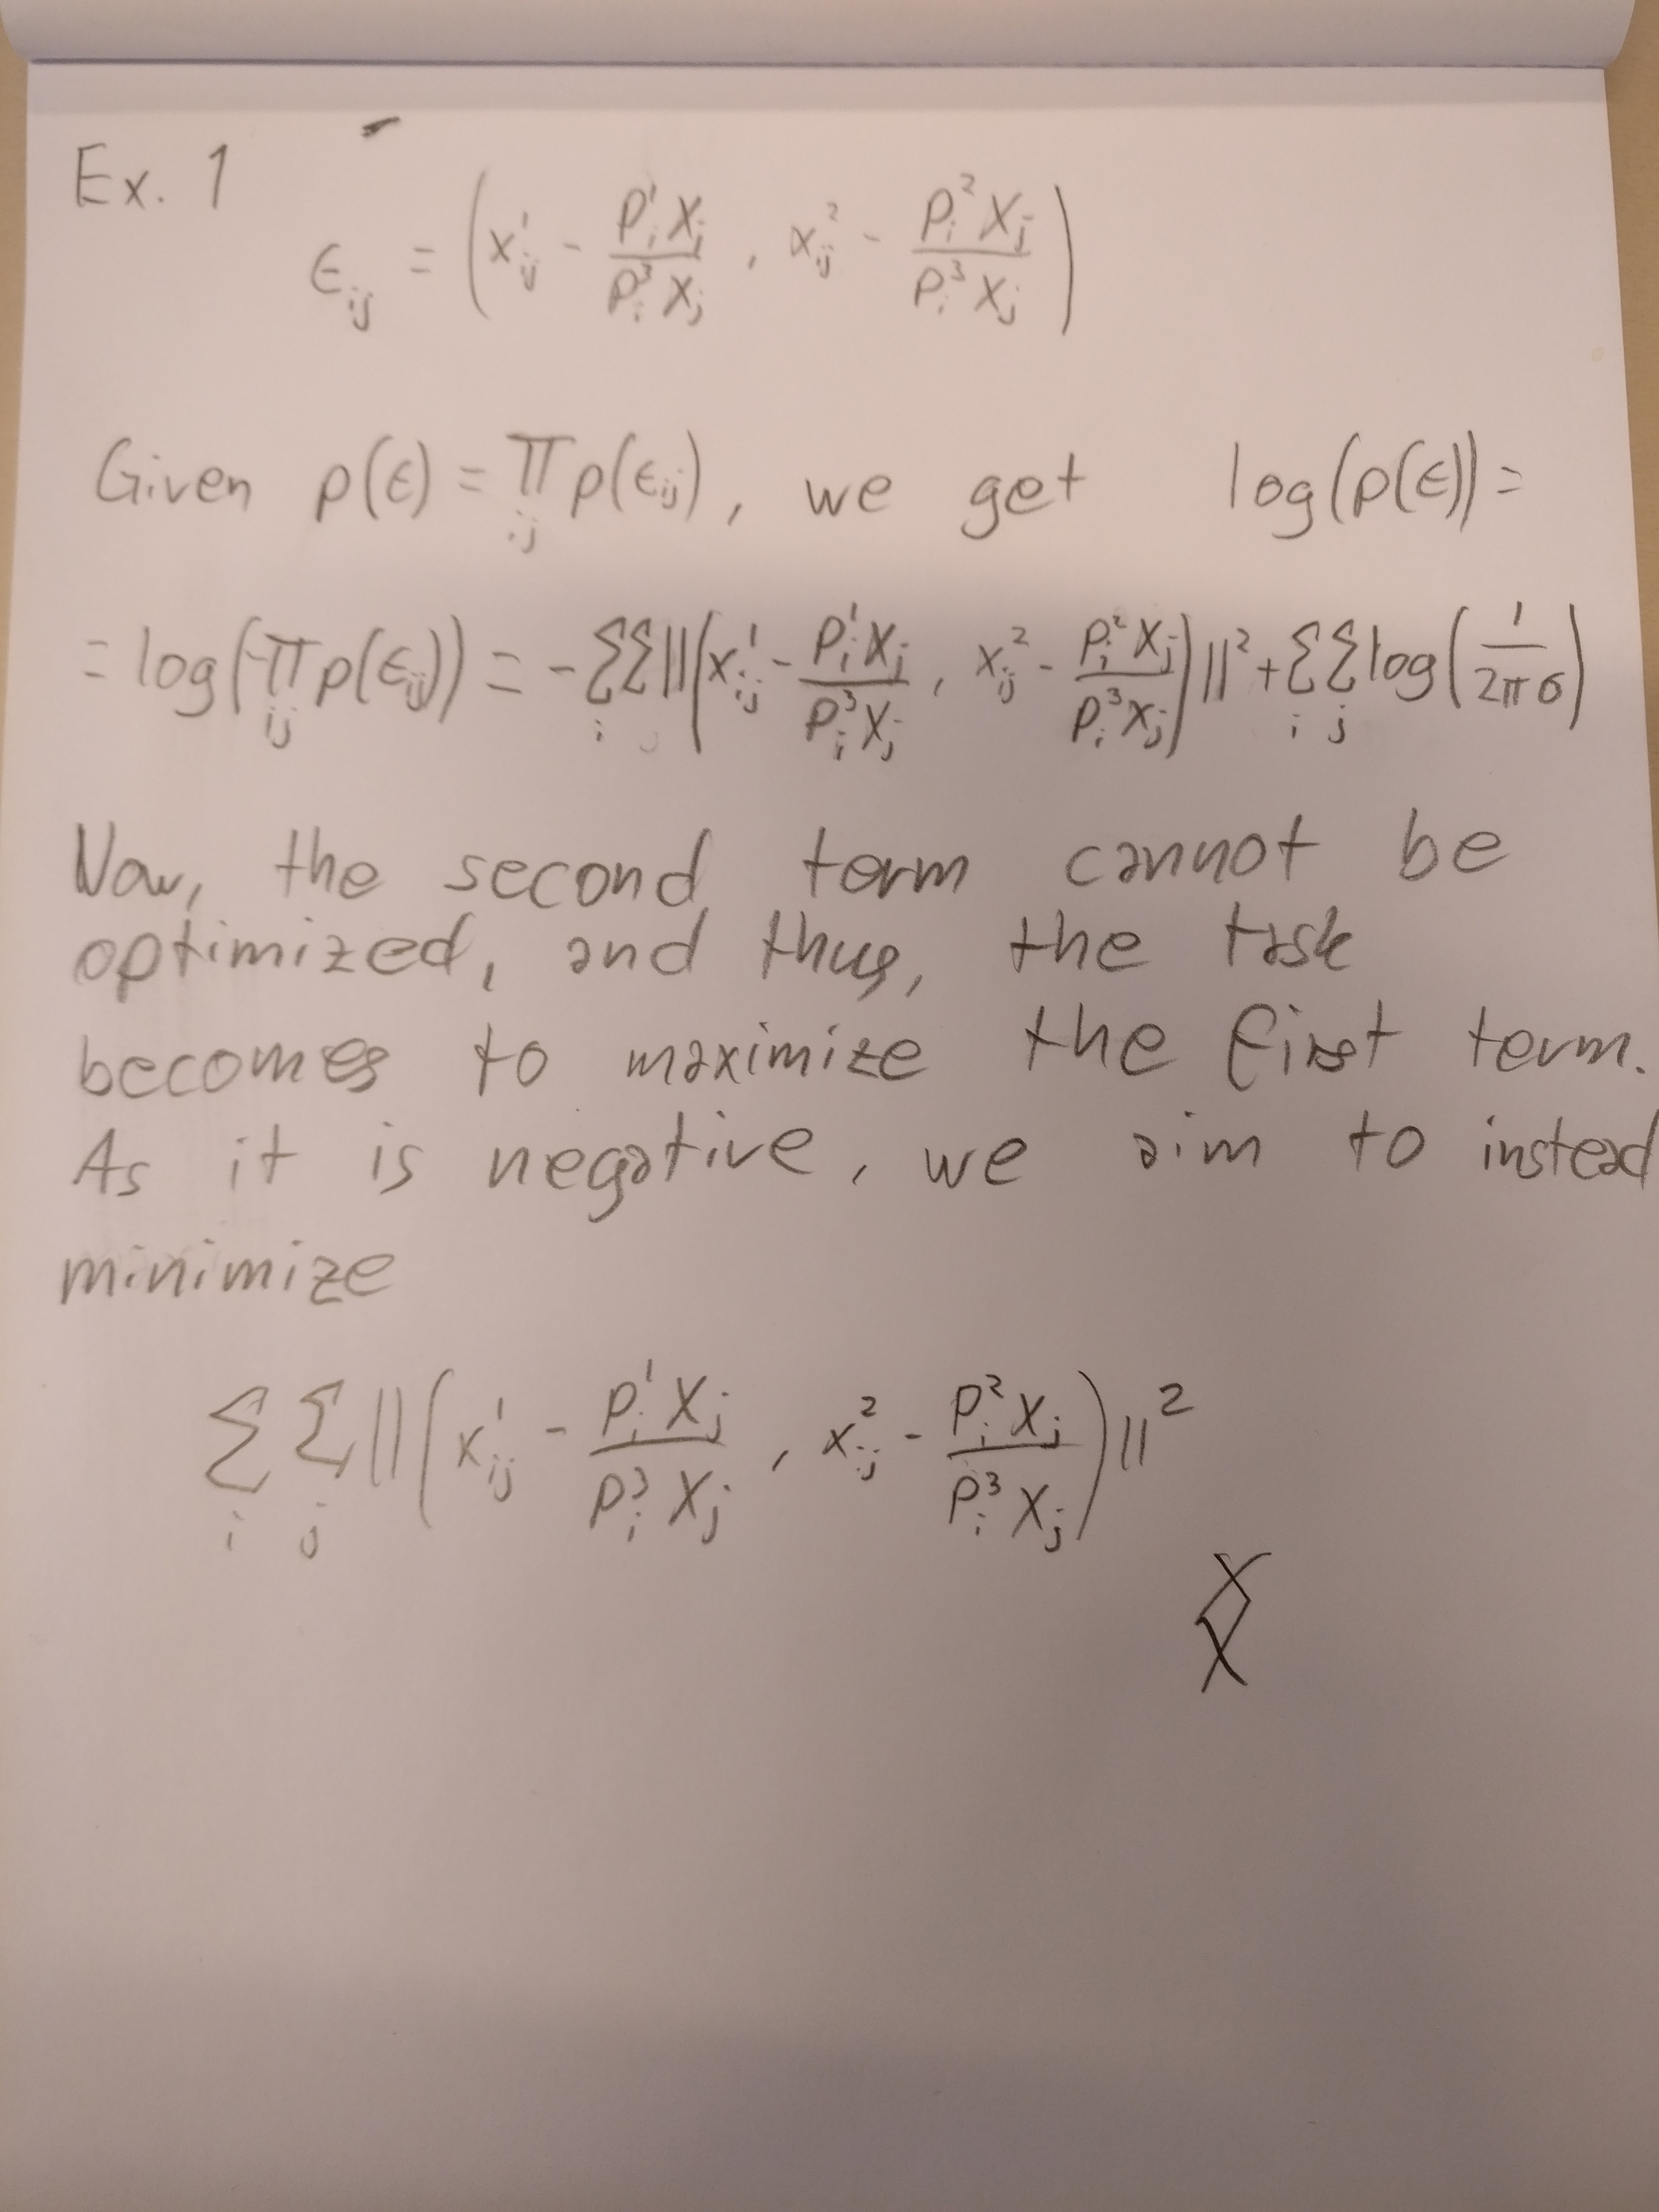 Ex. 1
ϵ_ij = (x_ij^1 - P_i^1 X_j / P_i^3 X_j , x_ij^2 - P_i^2 X_j / P_i^3 X_j)
Given p(ϵ) = ∏_ij p(ϵ_ij), we get log(p(ϵ)) =
= log(∏_ij p(ϵ_ij)) = - Σ_i Σ_j ||(x_ij^1 - P_i^1 X_j / P_i^3 X_j , x_ij^2 - P_i^2 X_j / P_i^3 X_j)||^2 + Σ_i Σ_j log(1 / 2πσ)
Now, the second term cannot be
optimized, and thus, the task
becomes to maximize the first term.
As it is negative, we aim to instead
minimize
Σ_i Σ_j ||(x_ij^1 - P_i^1 X_j / P_i^3 X_j , x_ij^2 - P_i^2 X_j / P_i^3 X_j)||^2